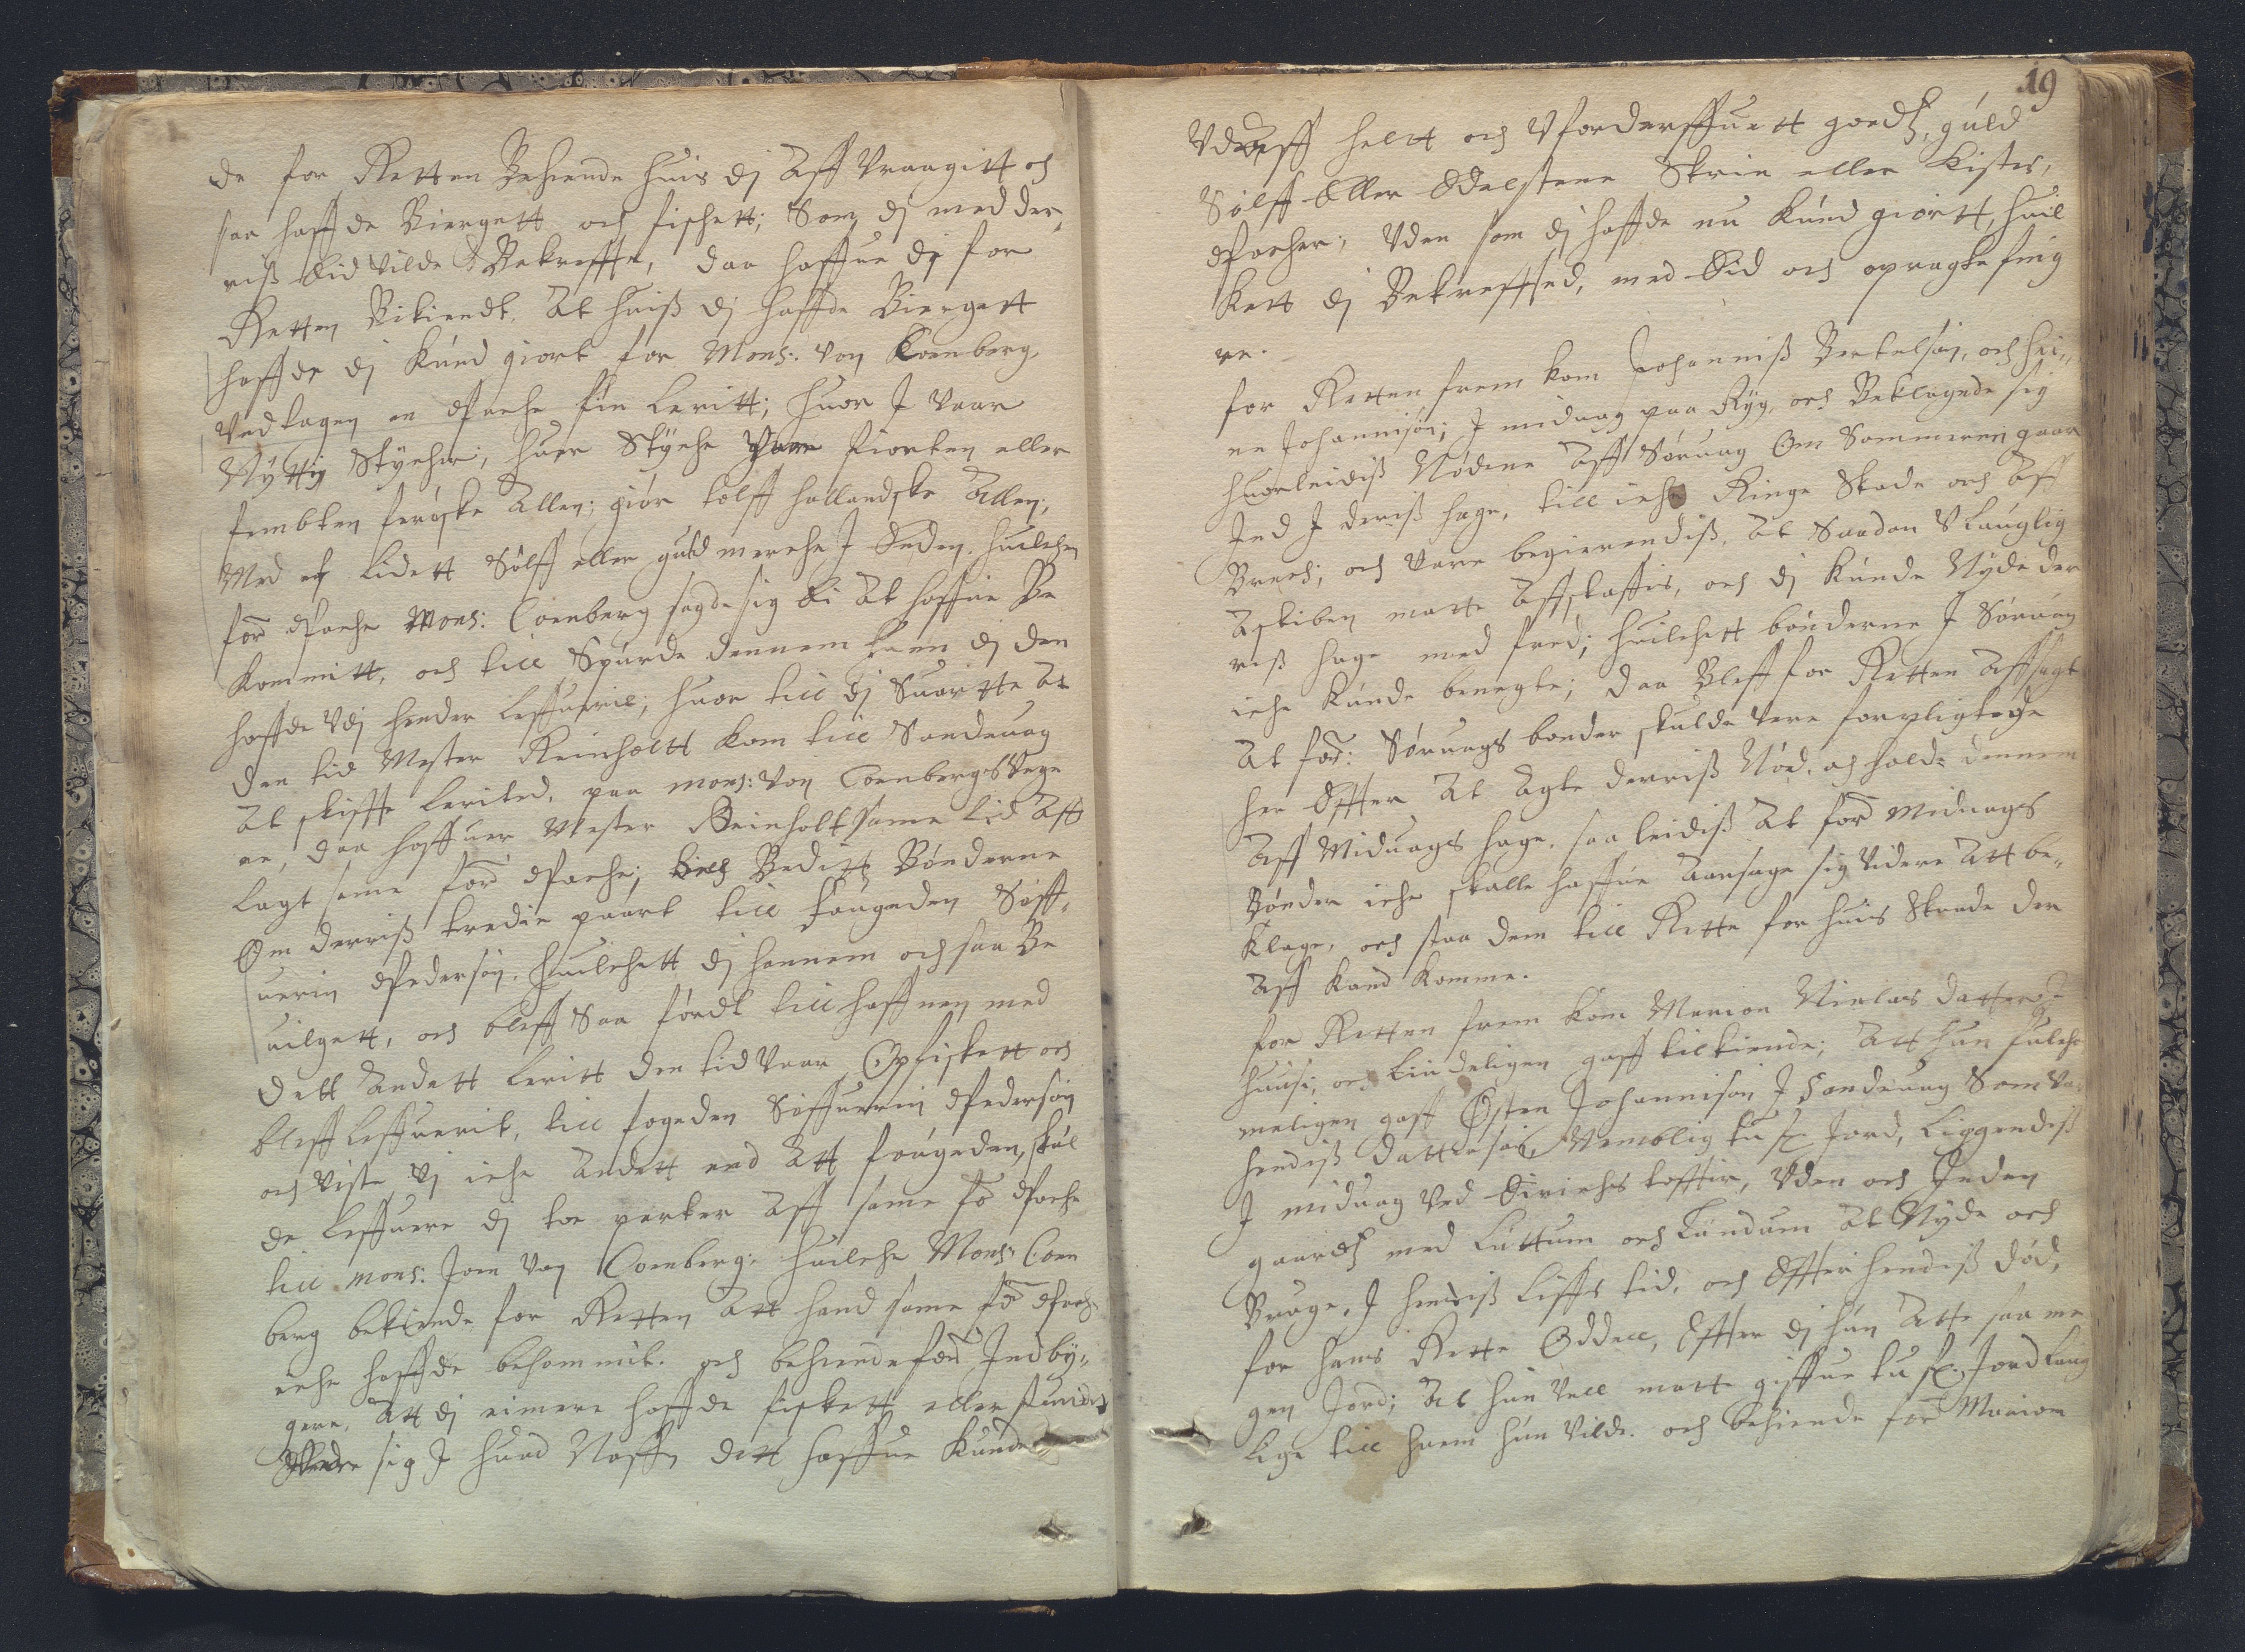 de for Retten Bekiende huis dj Aff Vraagitt och
saa haffde Biergett och fischett; Som dj med der„
riß Eid Vilde Bekreffte, daa haffue dj for
Retten Bekiendt, At huiß dj haffde Biergett
haffde dj Kund giort for Mons: von Coenberg,
Vndtagen en Pache fin Leritt; huor J Vaar
Nÿttÿ Stÿcher; huer Stÿche Vare fiorten eller
fembten ferøske Allen; giør tolff hollandske Allen;
Med et Lidett Sølff eller guld merche J Enden, huilchen
for: Pache Mons: Coenberg sagde sig Ei At haffue Be
kommitt, och till Spurde dennem huem dj den
haffde Vdj hender leffuerit; huor till dj Suarite At
den tid Mester Reinholtt kom till Sandeuog
At skiffte Leritted, paa mons: von Coenbergs Vegne
ne, daa haffuer Mester Reinholt same tid Aff
lagt same for: Pache; bleff Beditt Bønderne
Om derriß tredie paart till fougeden Søff„
uerin Pedersøn, huilchett dj hannem och saa Be
uilgett, och bleff Saa førdt till haffnen med
dett Andett Leritt den tid Vaar Opfiskett och
bleff leffuerit, till fogeden Søffuerin Pedersøn
och Viste Vj iche Andett end Att fougeden, skul
de leffuere dj toe parter Aff same fo: Pache
till mons: Joen von Coenberg; huilche Mons: Coen
berg bekiende for Retten Att hand same for: Pache
iche haffde bekommit. och bekiende for: Indbÿ„
gere, Att dj ei mere haffde fiskett eller funndet
sig J huad Naffn dett haffue Kunde
19
Vdaff heltt och Vforderffuett goedtz, guld
Sølff Eller Edelstene Skrin eller Kister,
Pacher; Vden som dj haffde nu Kund giortt, huil
kett dj Bekreffted, med Eid och opragte fing
re.
for Retten frem kom Johanniß Bertelsøn, och hei„
ne Johannisøn; J miduaag paa Rÿg, och Beklagede sig
huorleidiß Nødene Aff Søruag Om Sommeren gaar
Ind J deriß hage, till iche Ringe Skade och Aff
Brech; och Vare begierendiß, At Saadan Vlauglig
Askiben motte Affskaffis, och dj Kunde Nÿde der
riß hage med fred; huilchett bønderne J Søruaag
iche Kunde benegte; daa Bleff for Retten Affsagt
At for: Søruags bønder skulde Vere forpligtede
her Effter At Agte derriß Nød, och holde dennem
Aff Miduags hage, saa leidiß At for: Miduags
Bønder iche skalle haffue Aarsage sig Videre Att be„
klage, och staa dem till Rette for huis Skade der
Aff kand komme.
for Retten frem kom Marion Nielas datter J
huusi, och liudeligen gaff tilkiende; Att hun fulk
meligen gaff Østen Johannisøn J Sandeuag Som Var
hendiß dattersøn, Nemblig tu Jord, Liggendeß
J miduag Ved Eirichs tofftir, Vden och Inden
gaardtz med Luttum och Lundum At Nÿde och
Bruge, J hendiß Liffs tid, och Effter hendiß død,
for hans Rette Oddell, Effter dj hun Atte saa me
gen Jord; At hun Vell motte giffue tu Jord lang
lige till huem hun Vilde. och bekiende for: Marion